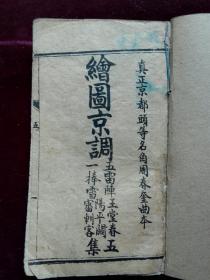 真正京都頭等名角周春奎曲本
繪圖京調
五雷陣玉堂春五
一捧雪陽平關審刺客集
五